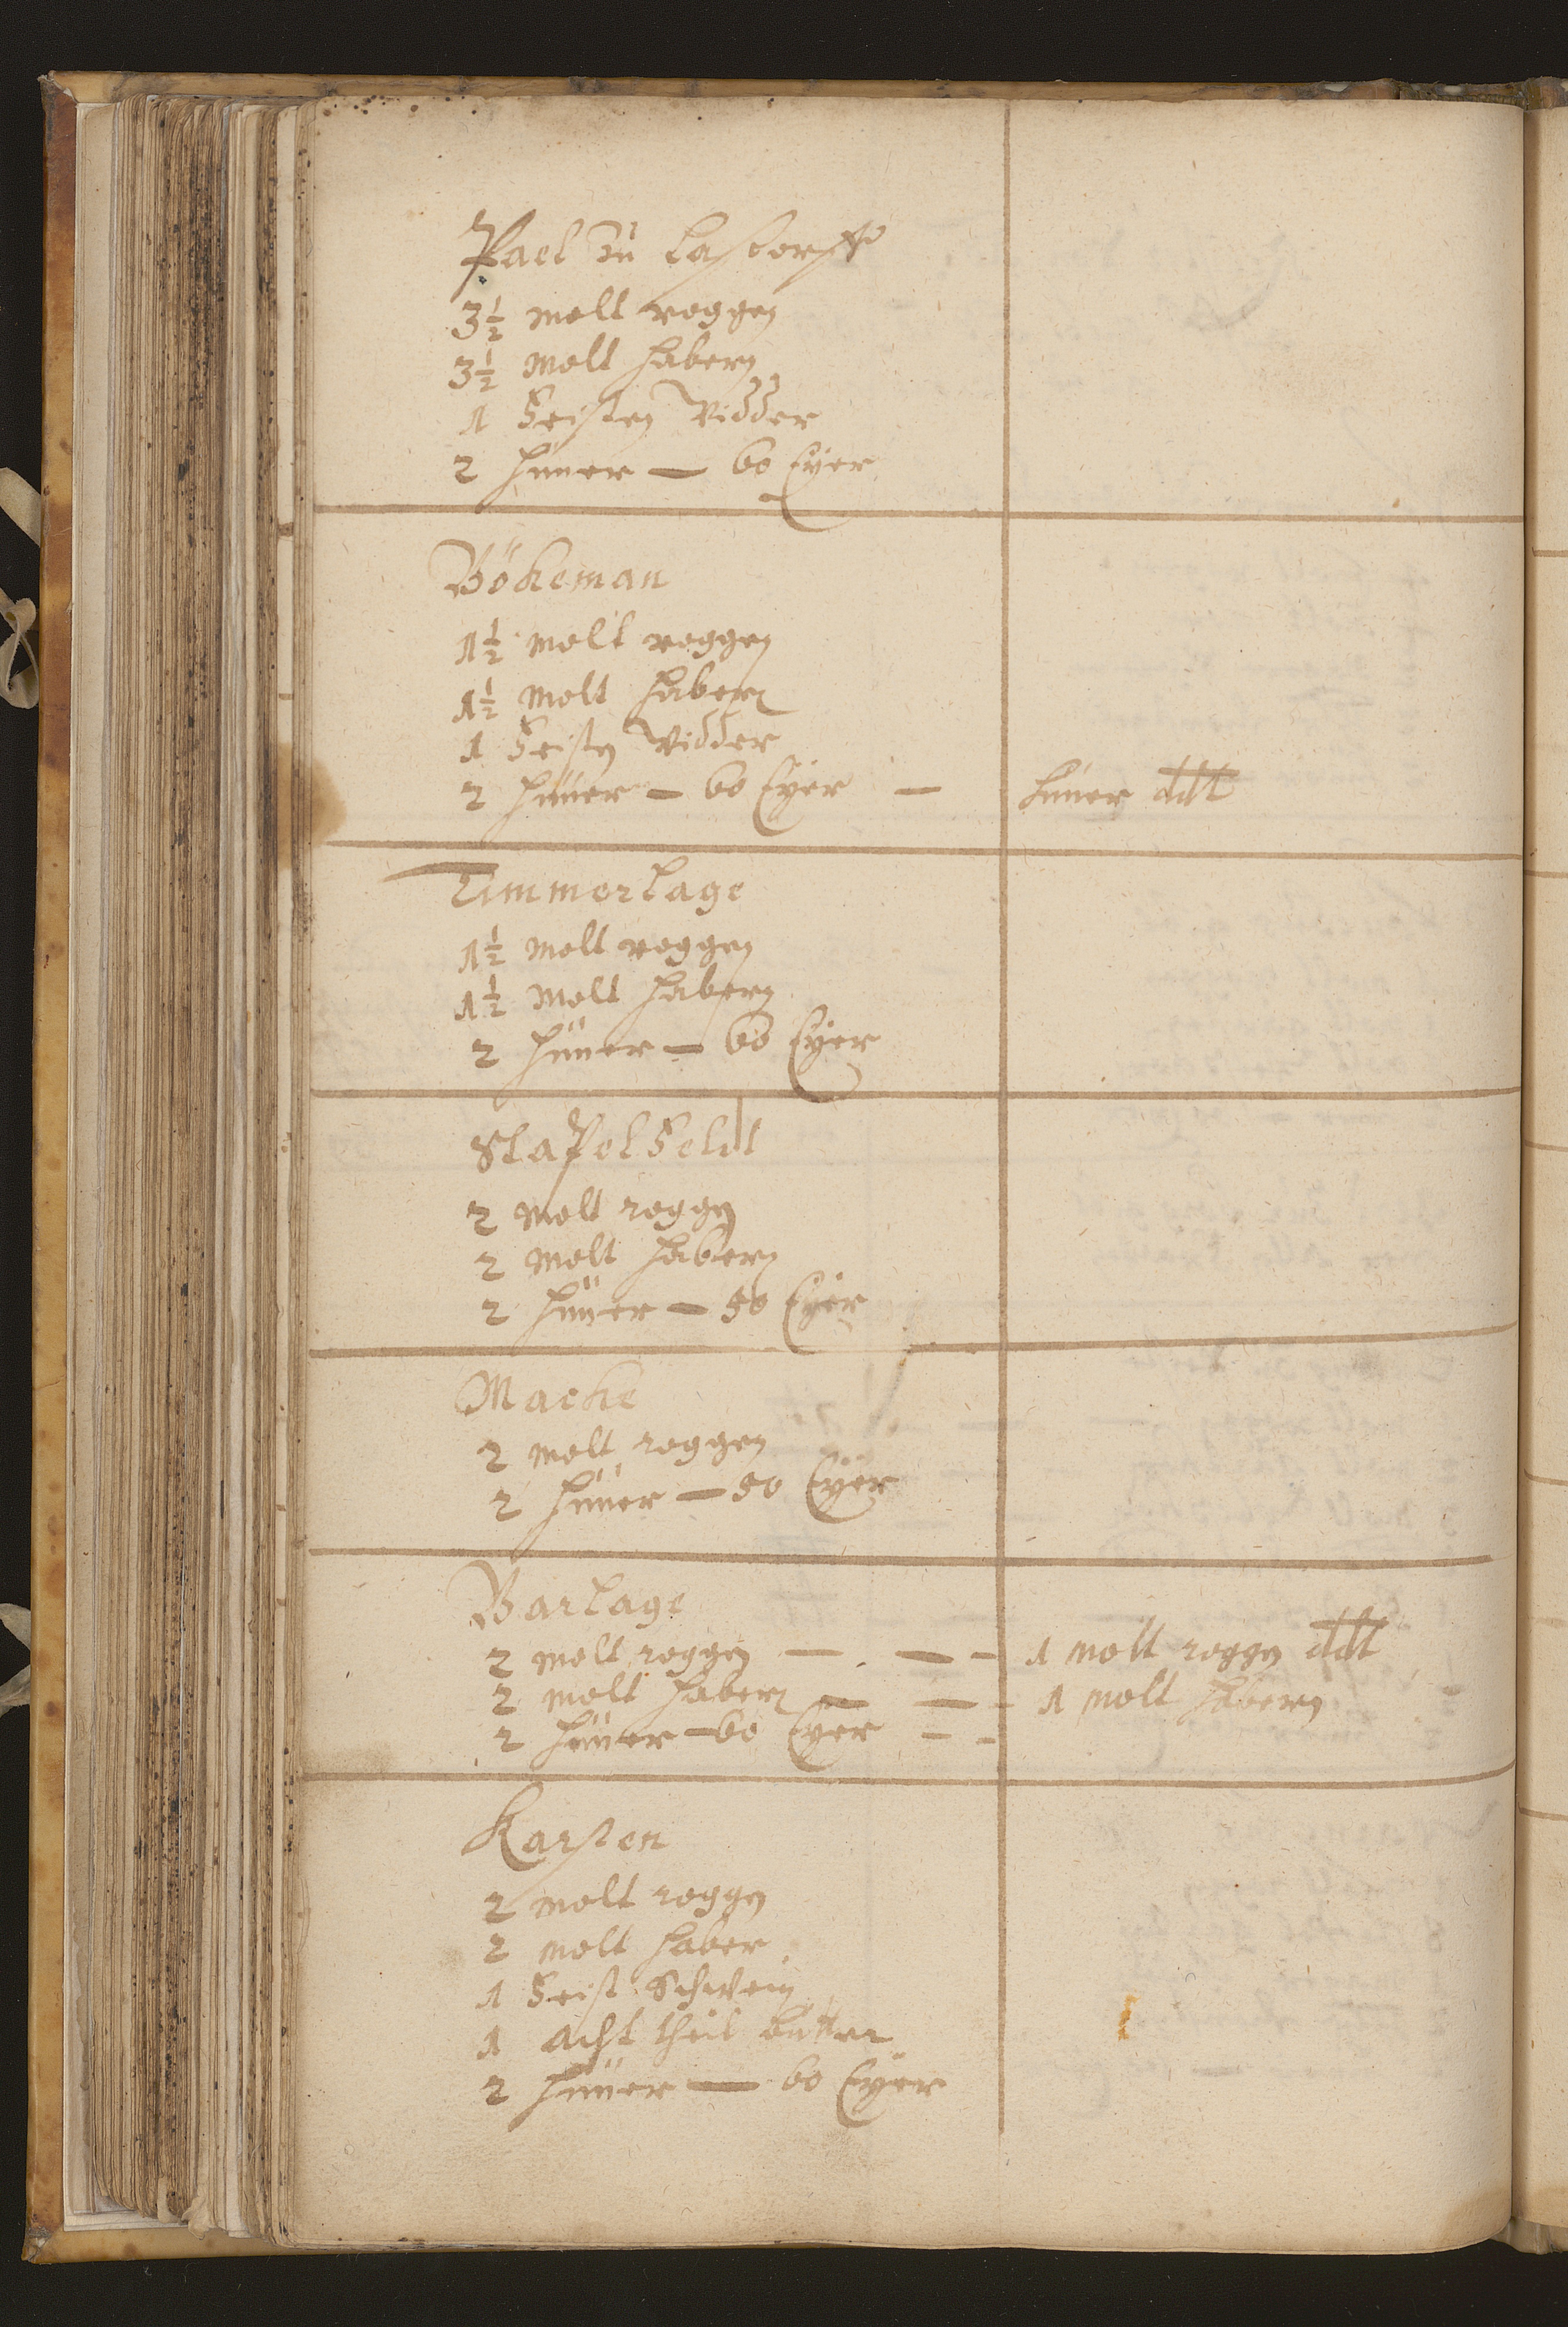 Pael zu Lastorff
3½ molt roggen
3½ molt habern
1 feisten Widder
2 Huner — 60 Eyer
Bökeman
1½ molt roggen
1½ molt habern
1 feisten Widder
2 Hüner — 60 Eyer — hüner ddt
Timmerlage
1½ molt roggen
1½ molt habern
2 Hüner — 60 Eyer
Stapelfeldt
2 molt roggen
2 molt habern
2 Hüner — 50 Eyer
Macke
2 molt roggen
2 Hüner — 50 Eyer
Barlage
2 molt roggen — — — 1 molt roggen ddt
2 molt habern — — — 1 molt habern
2 Hüner — 60 Eyer — —
Karsten
2 molt roggen
2 molt haber
1 feist Schwein
1 acht theil butter
2 Hüner — 60 Eyer